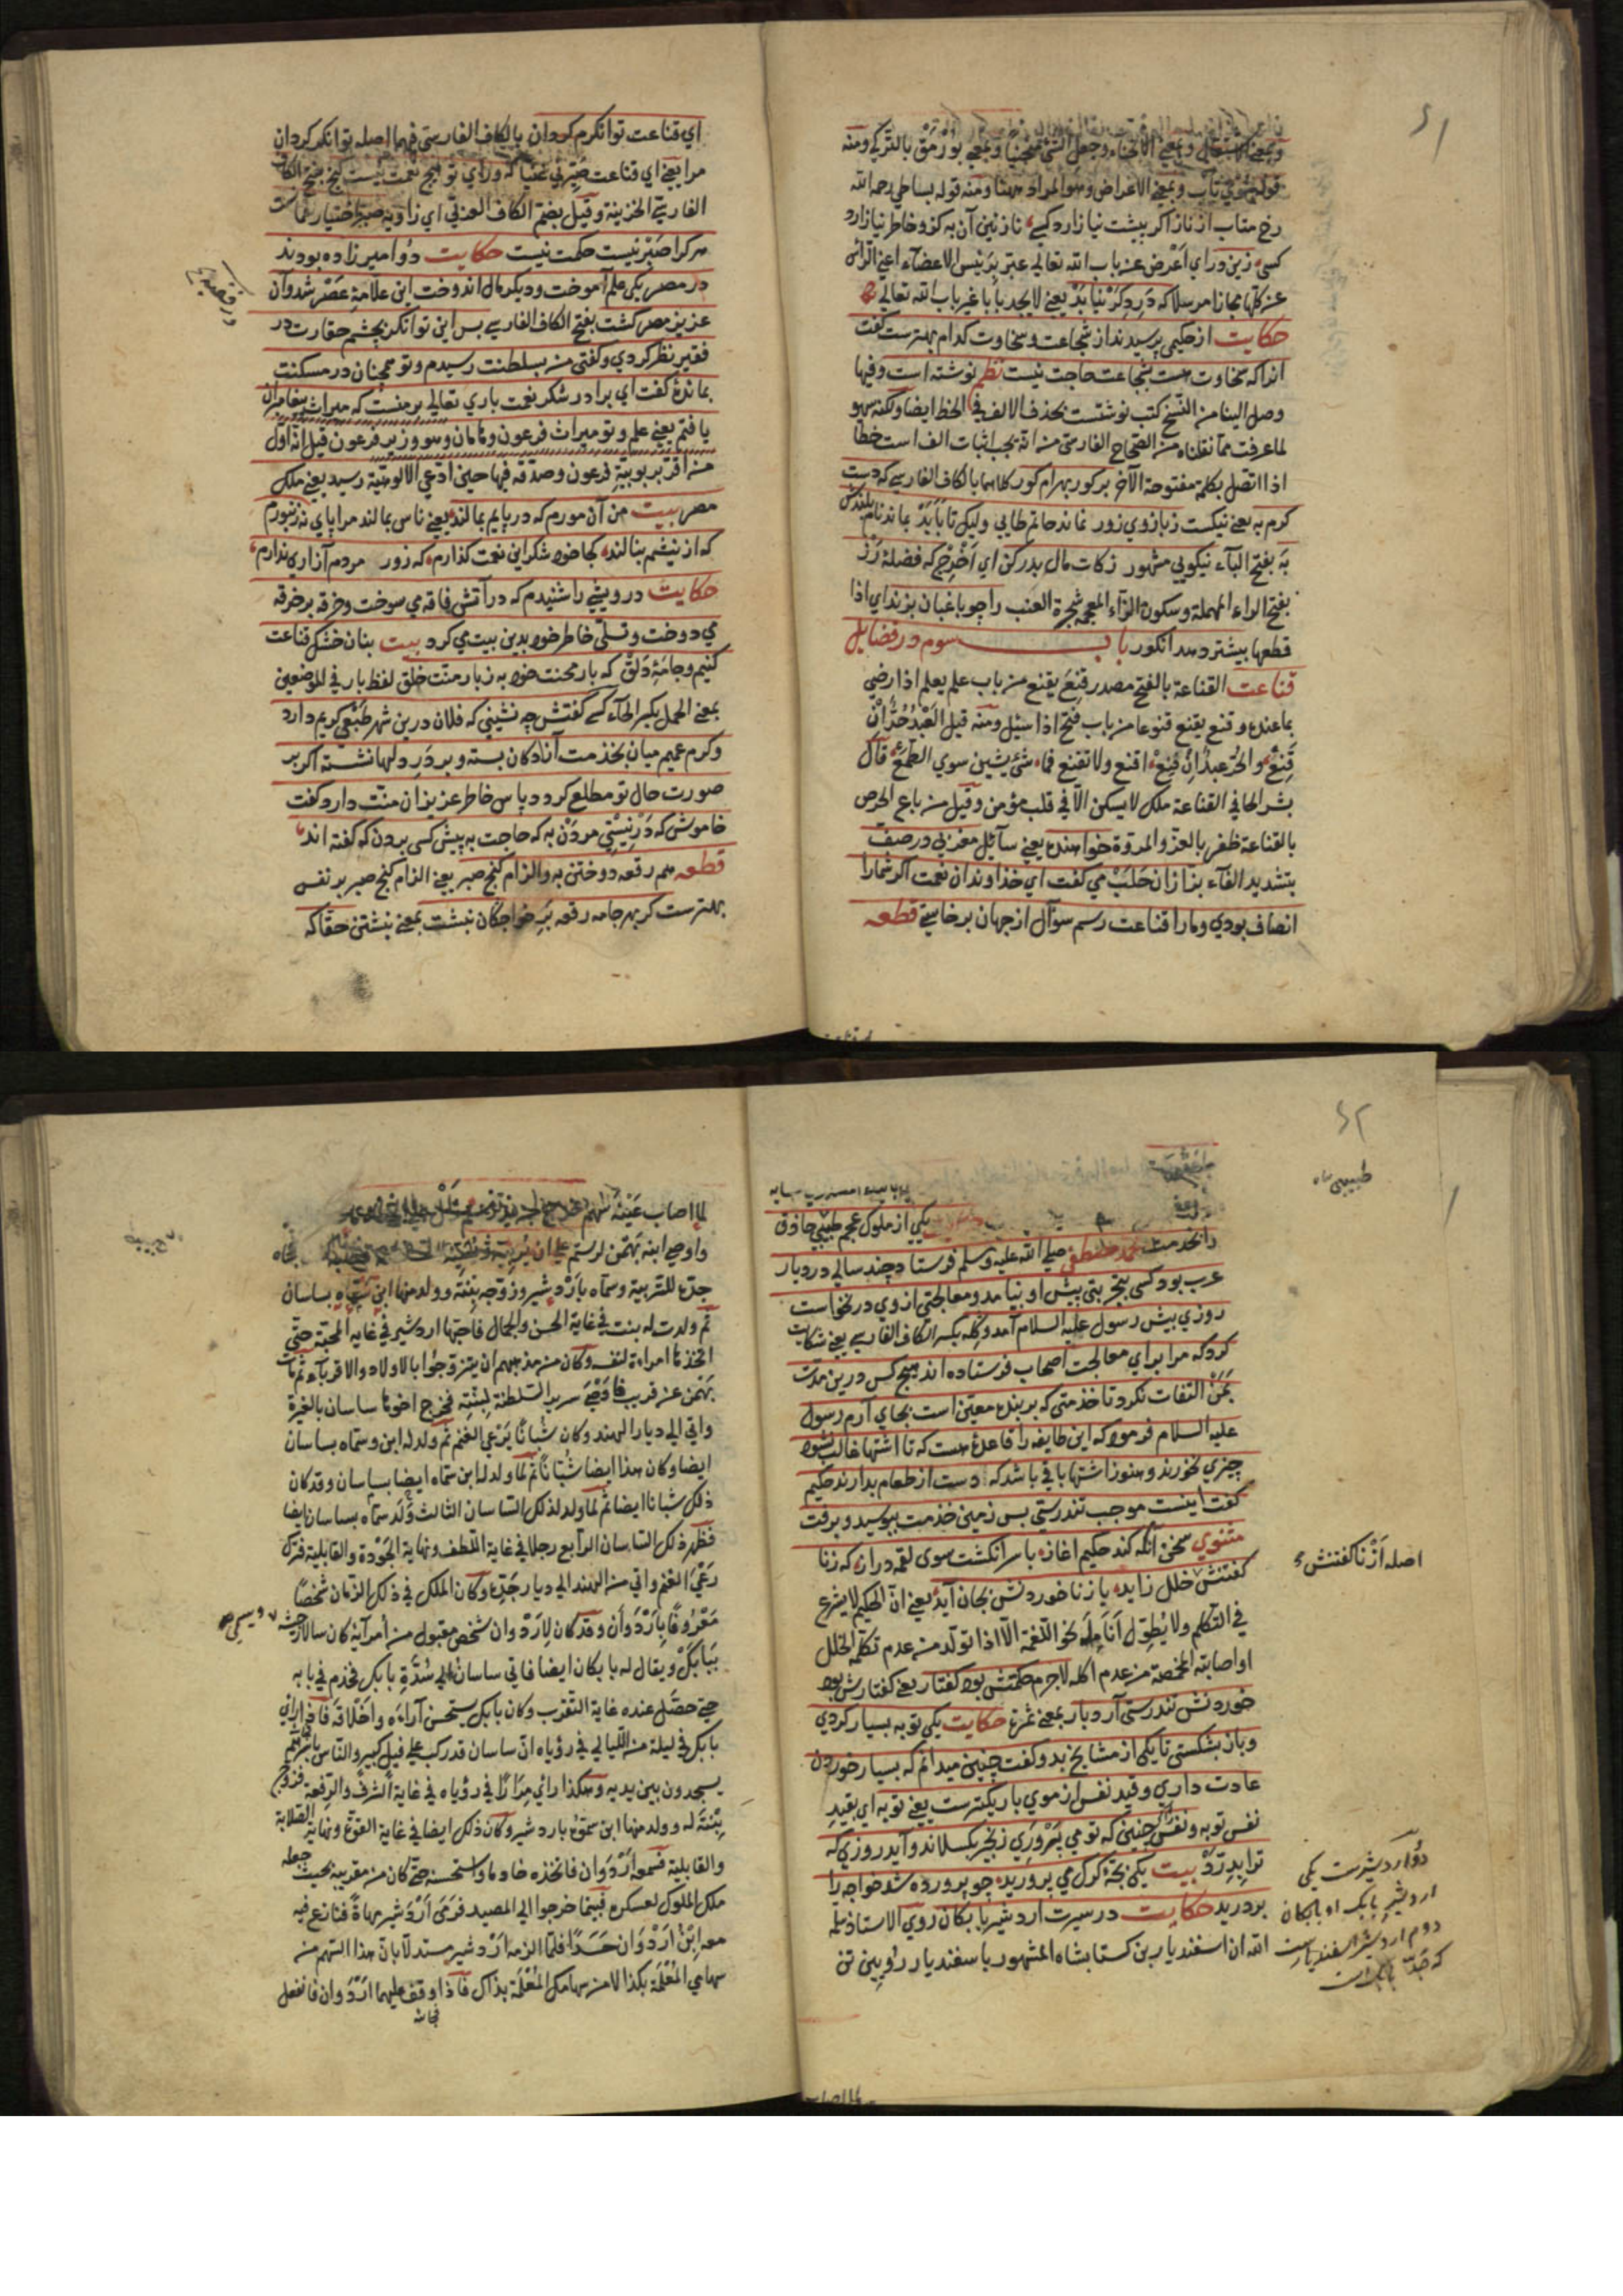 ۶۱
وبمعنى الاشتغال وبمعنى الانحناء وجعل الشئ منحنيا وبمعنى بورمق بالتركي ومنه
قوله وبمعنى الاعراض وهو المراد ههنا ومنه قوله بساطي رحمه الله
رخ متاب از ناز اكر پيشت نياز ارد كسى نازنين آن به كزو خاطر نيازارد
كسى زين در اي اعرض عن باب الله تعالى عبر برئيس الاعضاء اعني الرأس
عن كلها مجازا مرسلا كه در دكر نيابد يعني لا يجد بابا غير باب الله تعالى
حكايت از حكيمى پرسيدند از شجاعت وسخاوت كدام بهترست كفت
انرا كه سخاوت هست بشجاعت حاجت نيست نظم نوشته است وفيها
وصل الينا من النسخ كتب نوشتست بحذف الالف في الخط ايضا ولكنه سهو
لما عرفت مما نقلناه من الصحاح الفارسي من انه يجب اثبات الف است خطا
اذا اتصل بكلمة مفتوحة الآخر بر كور بهرام كور كلاهما بالكاف الفارسي كه دست
كرم به يعني نيكست ز بازوي زور نماند حاتم طايي وليك تا بابد بماند نام بلندش
به بفتح الباء نيكويي مشهور زكات مال بدر كن اي اخرج كه فضلهٔ رز
بفتح الراء المهملة وسكون الزاء المعجمة شجرة العنب را چو باغبان بزند اي اذا
قطعها بيشتر دهد انكور باب سوم در فضايل
قناعت القناعة بالفتح مصدر قنع يقنع من باب علم يعلم اذا رضي
بما عنده وقنع يقنع قنوعا من باب فتح اذا سئل ومنه قيل العبد حر ان
قنع والحر عبد ان قنع اقنع ولا تقنع فما شئ يشين سوى الطمع قال
بشر الحافي القناعة ملك لا يسكن الا في قلب مؤمن وقيل من باع الحرص
بالقناعة ظفر بالعز والمروة خواهنده يعني سائل مغربي در صف
بتشديد الفاء بزازان حلب مى كفت اي خداوندان نعمت اكر شمارا
انصاف بودي ومارا قناعت رسم سؤال از جهان برخاستي قطعه
اي قناعت توانكرم كردان بالكاف الفارسي فيهما اصله توانكر كردان
مرا يعني اي قناعت صيرني غنيا كه وراي تو هيچ نعمت نيست كنج بفتح الكاف
الفارسي الخزينة وقيل بضم الكاف العربي اي زاويه صبر اختيار لقمانست
هر كرا صبر نيست حكمت نيست حكايت دو امير زاده بودند
در مصر يكى علم آموخت وديكر مال اندوخت اين علامهٔ عصر شد وآن
عزيز مصر كشت بفتح الكاف الفارسي پس اين توانكر بچشم حقارت در
فقير نظر كردي وكفتى من بسلطنت رسيدم وتو همچنان در مسكنت
بماندهٔ كفت اي برادر شكر نعمت باري تعالى بر منست كه ميراث پيغامبران
يافتم يعني علم وتو ميراث فرعون وهامان وهو وزير فرعون قيل انه اول
من اقر بربوبية فرعون وصدقه فيها حين ادعى الالوهية رسيد يعني ملك
مصر بيت من آن مورم كه در پايم بمالند يعني ناس بمالند مرا پاي نه زنبورم
كه از نيشم بنالند كجا خود شكر اين نعمت كذارم كه زور مردم آزاري ندارم
حكايت درويشى را شنيدم كه در آتش فاقه مى سوخت وخرقه بر خرقه
مى دوخت وتسلى خاطر خود بدين بيت مى كرد بيت بنان خشك قناعت
كنيم وجامهٔ دلق كه بار محنت خود به ز بار منت خلق لفظ بار في الموضعين
بمعنى الحمل بكسر الحاء كسى كفتش چه نشيني كه فلان درين شهر طبعى كريم دارد
وكرم عميم ميان بخدمت آزادكان بسته وبر در دلها نشسته اكر بر
صورت حال تو مطلع كردد پاس خاطر عزيزان منت دارد كفت
خاموش كه در نيستي مردن به كه حاجت به پيش كسى بردن كه كفته اند
قطعه هم رقعه دوختن به والزام كنج صبر يعني الزام كنج صبر بر نفس
بهترست كز بهر جامه رقعه بر خواجكان نبشت بمعنى نبشتن حقا كه
۶۲
يكى از ملوك عجم طبيبى حاذق
را بخدمت محمد مصطفى صلى الله عليه وسلم فرستاد چند سالى در ديار
عرب بود كسى بتجربتى پيش او نيامد ومعالجتى از وى در نخواست
روزي پيش رسول عليه السلام آمد وكله بكسر الكاف الفارسي يعني شكايت
كرد كه مرا براي معالجت اصحاب فرستاده اند هيچ كس درين مدت
بمن التفات نكرد تا خدمتى كه بر بنده معينست بجاي آرم رسول
عليه السلام فرمود كه اين طايفه را قاعدهٔ هست كه تا اشتها غالب نشود
چيزي نخورند وهنوز اشتها باقي باشد كه دست از طعام بدارند حكيم
كفت اينست موجب تندرستي پس زمين خدمت ببوسيد وبرفت
مثنوي سخن آنكه كند حكيم اغاز يا سر انكشت سوى لقمه دراز كه ز نا
كفتنش خلل زايد يا ز نا خوردنش بجان آيد يعني ان الحكيم لا يشرع
في التكلم ولا يطول انامله نحو اللقمة الا اذا تولد من عدم تكلمه الخلل
او اصابته المخمصة من عدم اكله لاجرم حكمتش بود كفتار يعني كفتارش بود
خوردنش تندرستي آرد بار بمعنى ثمرة حكايت يكى توبه بسيار كردي
وباز بشكستى تا يكى از مشايخ بدو كفت چنين ميدانم كه بسيار خوردن
عادت داري وقيد نفس از موي باريكترست يعني توبه اي بقيد
نفس توبه ونفس را چنين كه تو مى پروري زنجير بكسلاند وآيد روزي كه
ترا بدرد بيت يكى بچهٔ كرك مى پروريد چو پرورده شد خواجه را
بر دريد حكايت در سيرت اردشير بابكان روي الاستاذ
الله ان اسفنديار بن كستا بشاه المشهور باسفنديار رويين تن
اصله از نا كفتنش
دو اردشيرست يكى
اردشير بابك او بابكان
دوم اردشير اسفنديارست
لما اصاب عينه سهم
واوصى ابنه بهمن لرستم على ان يربيه
جده للتربية وسماه باردشير وزوجه بنته وولد منها ابن سماه بساسان
ثم ولدت له بنت في غاية الحسن والجمال فاحبها اردشير في غاية المحبة حتى
اتخذها امراءة لنفسه وكان من مذهبهم ان يتزوجوا بالاولاد والاقرباء ثم مات
بهمن عن قريب فاوصى سرير السلطنة لبنته فخرج اخوها ساسان بالغيرة
واتى الى ديار الهند وكان شبانا يرعى الغنم ثم ولد له ابن وسماه بساسان
ايضا وكان هذا ايضا شبانا ثم لما ولد له ابن سماه ايضا بساسان وقد كان
ذلك شبانا ايضا ثم لما ولد لذلك الساسان الثالث ولد سماه بساسان ايضا
فظهر ذلك الساسان الرابع رجلا في غاية اللطف ونهاية الجودة والقابلية فترك
رعي الغنم واتى من الهند الى ديار جده وكان الملك في ذلك الزمان شخصا
معروفا باردوان وقد كان لاردوان شخص مقبول من امرائه كان سالار جيشه ويسمى
ببابك ويقال له بابكان ايضا فاتى ساسان الى سدة بابك فخدم في بابه
حتى حصل عنده غاية التقرب وكان بابك يستحسن آراءه واخلاقه فاتفق ان رأى
بابك في ليلة من الليالي في رؤياه ان ساسان قد ركب على فيل كبير والناس باسرهم
يسجدون بين يديه وهكذا رأي مرارا في رؤياه في غاية الشرف والرفعة فزوج
بنته له وولد منها ابن سموه باردشير وكان ذلك ايضا في غاية القوة ونهاية الصلابة
والقابلية فسمعه اردوان فاتخذه خادما واستحسنه حتى كان من مقربيه بحيث جعله
ملك الملوك لعسكره فبينما خرجوا الى المصيد فرمى اردشير مهاة فتنازع فيه
معه ابن اردوان حسدا فلما الزمه اردشير مستدلا بان هذا السهم من
سهامي المعلمة بكذا لا من سهامك المعلمة بذاك فاذا وقف عليهما اردوان فانفعل